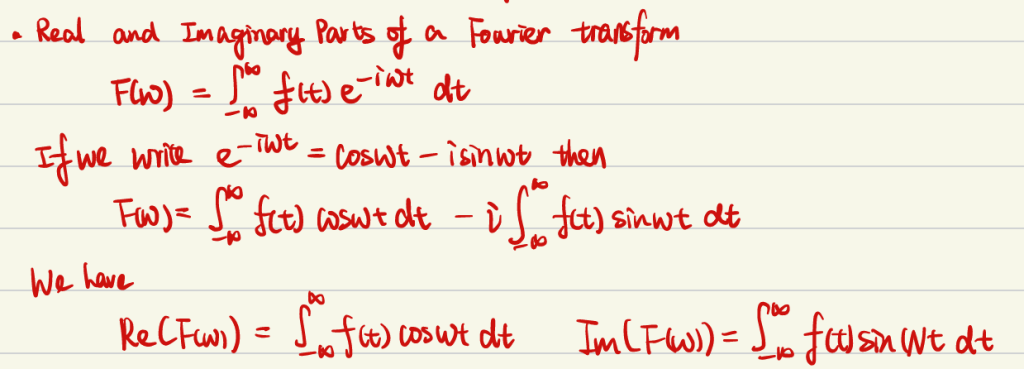 • Real and Imaginary Parts of a Fourier transform
F(ω) = ∫_{-∞}^{∞} f(t) e^{-iωt} dt
If we write e^{-iωt} = cosωt - i sinωt then
F(ω) = ∫_{-∞}^{∞} f(t) cosωt dt - i ∫_{-∞}^{∞} f(t) sinωt dt
We have
Re(F(ω)) = ∫_{-∞}^{∞} f(t) cosωt dt Im(F(ω)) = ∫_{-∞}^{∞} f(t) sinωt dt